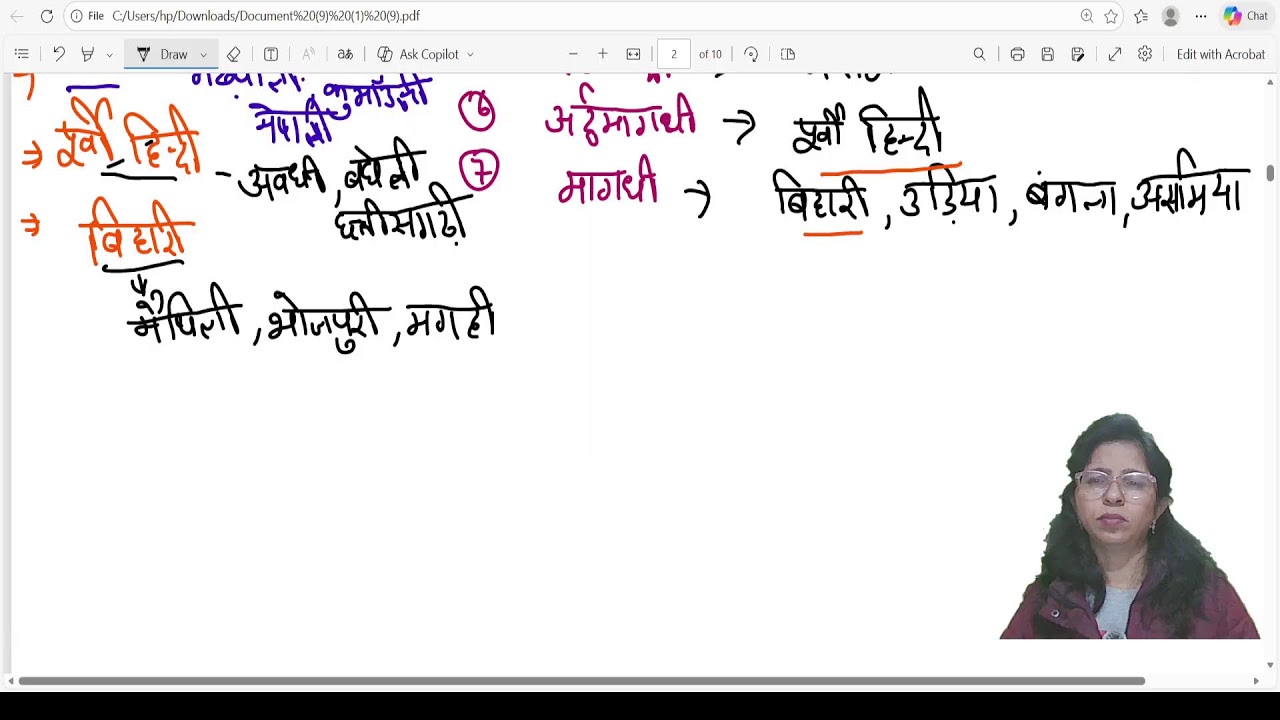 File C:/Users/hp/Downloads/Document%20(9)%20(1)%20(9).pdf
Chat
Draw
Ask Copilot
2 of 10
Edit with Acrobat
नेपाली
→ पूर्वी हिन्दी - अवधी, बघेली
छत्तीसगढ़ी
→ बिहारी
मैथिली, भोजपुरी, मगही
⑥ अर्द्धमागधी → पूर्वी हिन्दी
⑦ मागधी → बिहारी, उड़िया, बंगला, असमिया